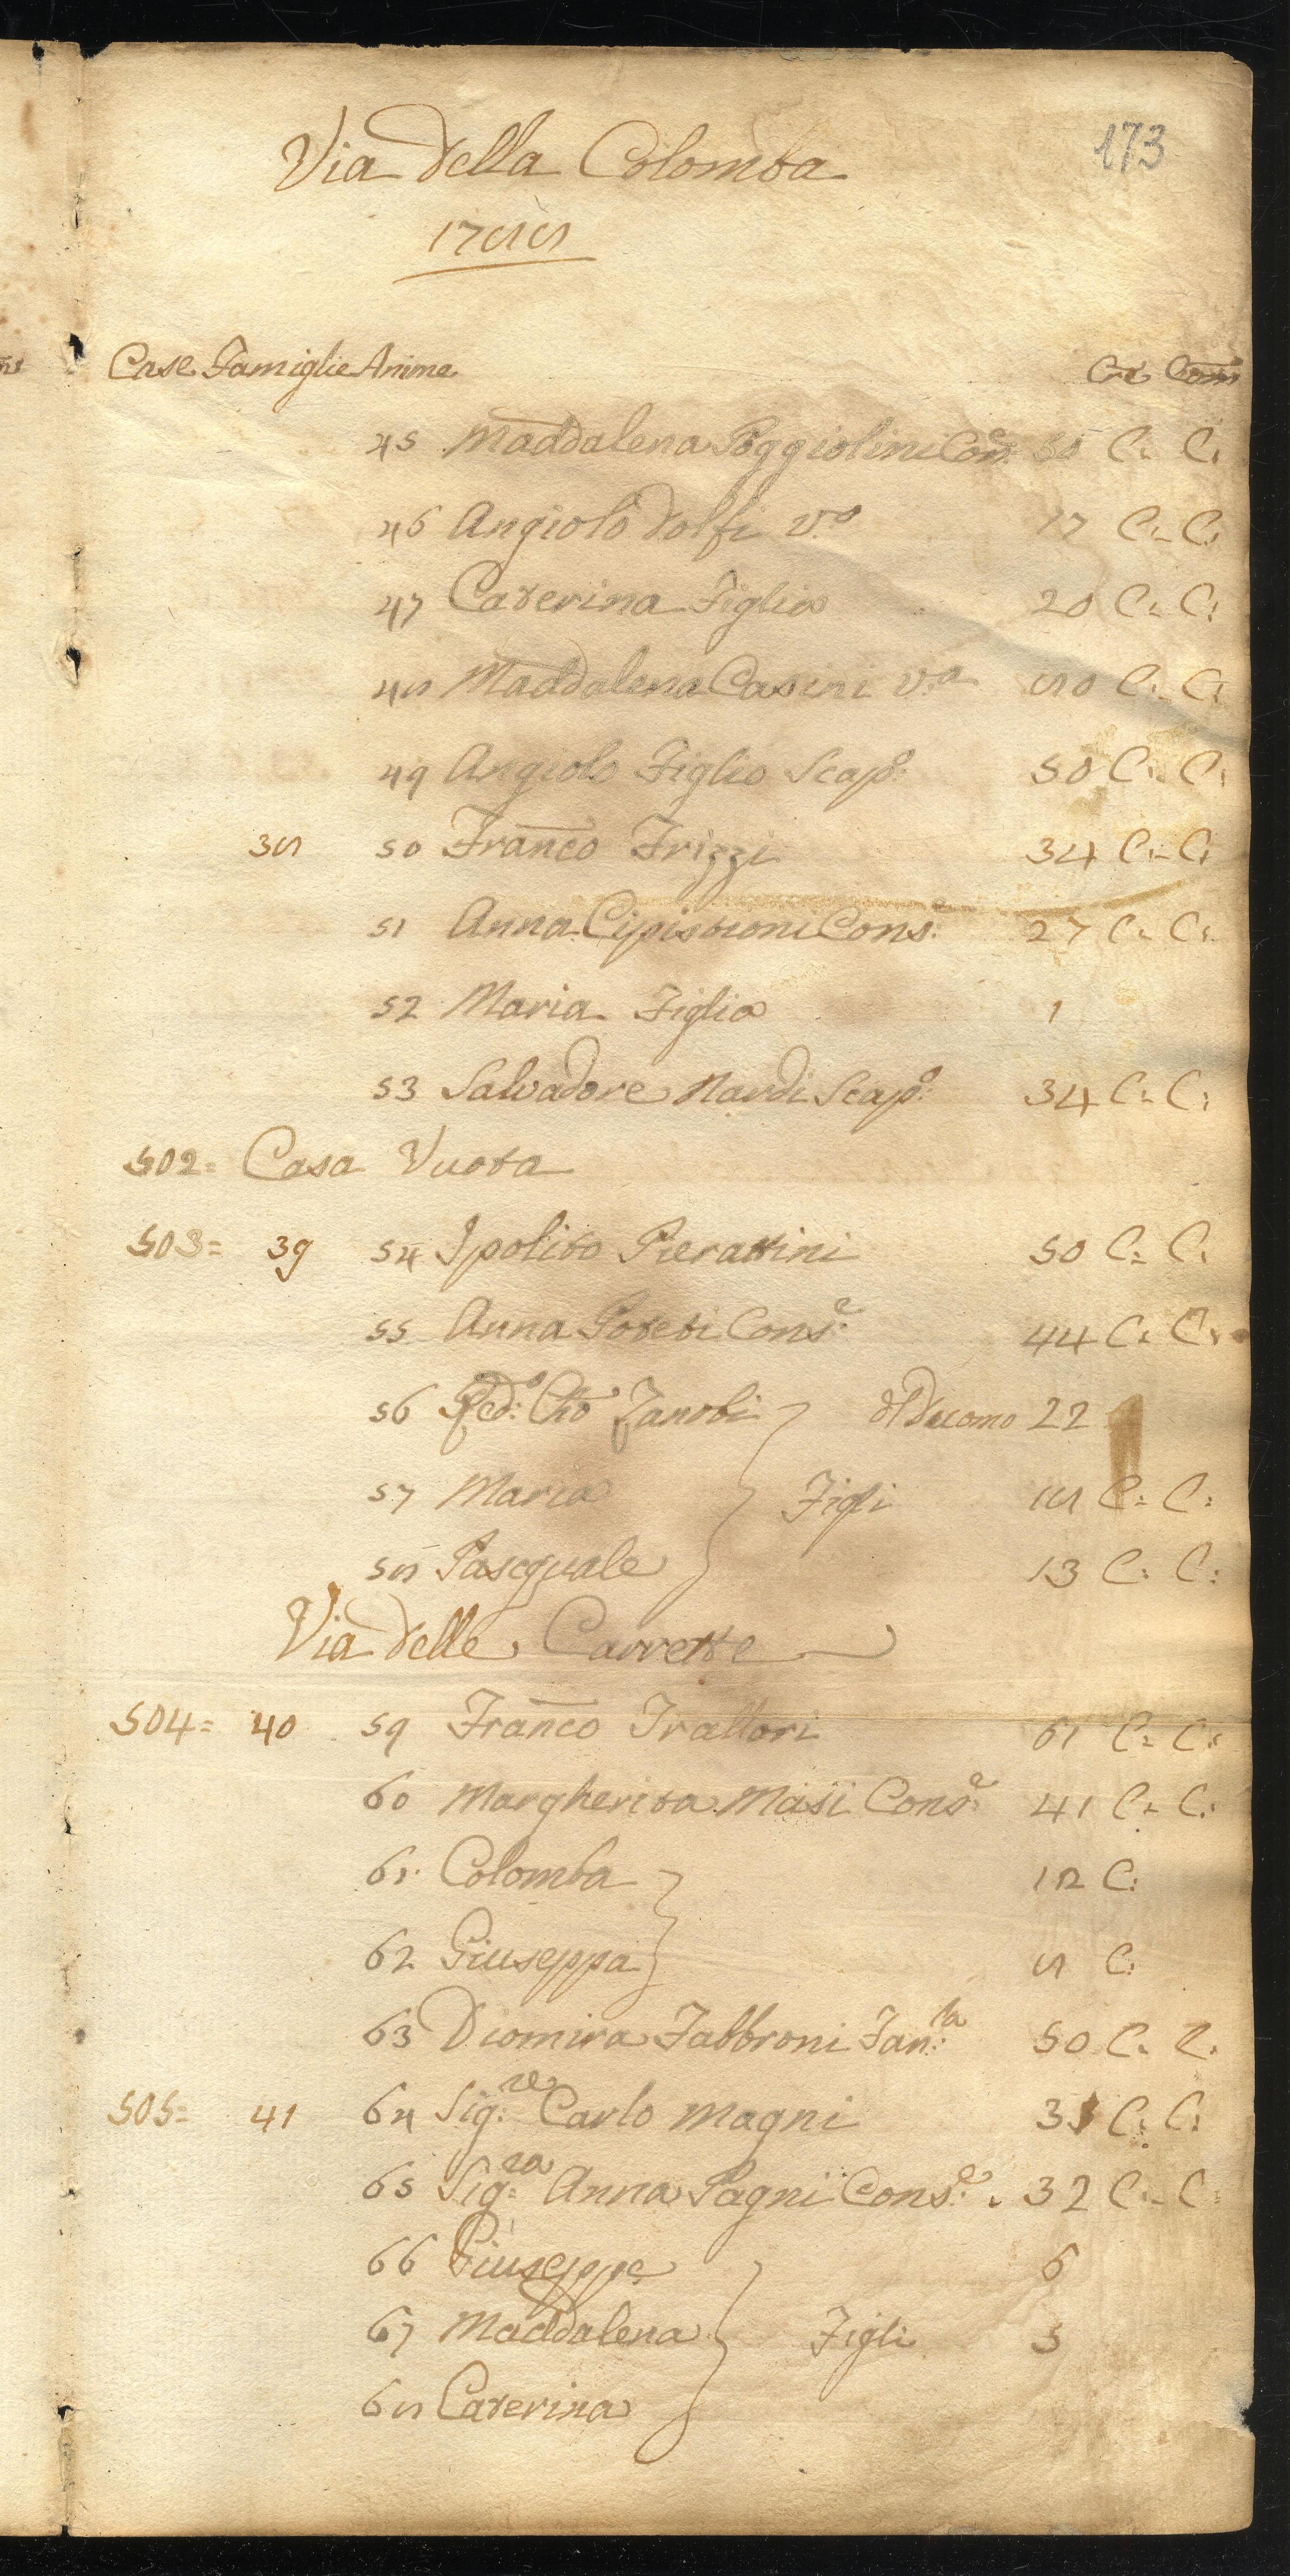 173
Via della Colomba
1788
Case Famiglie Anime Cre: Com
45 Maddalena Poggiolini Con: 50 C: C:
46 Angiolo Dolfi v.o 17 C: C:
47 Caterina Figlia 20 C: C:
48 Maddalena Casini v.a 80 C: C:
49 Angiolo Figlio Scap:o 50 C: C:
38 50 Franco Frizzi 34 C: C:
51 Anna Cipistioni Cons:e 27 C: C:
52 Maria Figlia 1
53 Salvadore Nardi Scap:o 34 C: C:
502= Casa Vuota
503= 39 54 Ipolito Pierattini 50 C: C:
55 Anna Poteti Cons:e 44 C: C:
56 Zanobi Duomo 22
57 Maria Figli 18 C: C:
58 Pascquale 13 C: C:
Via delle Carrette
504= 40 59 Franco Trattori 61 C: C:
60 Margherita Masii Cons:e 41 C: C:
61 Colomba 12 C:
62 Giuseppa 8 C:
63 Diomira Fabbroni Fan:la 50 C: C:
505= 41 64 Sig:re Carlo Magni 33 C: C:
65 Sig:ra Anna Pagni Cons:e 32 C: C:
66 Giuseppe 6
67 Maddalena Figli 5
68 Caterina